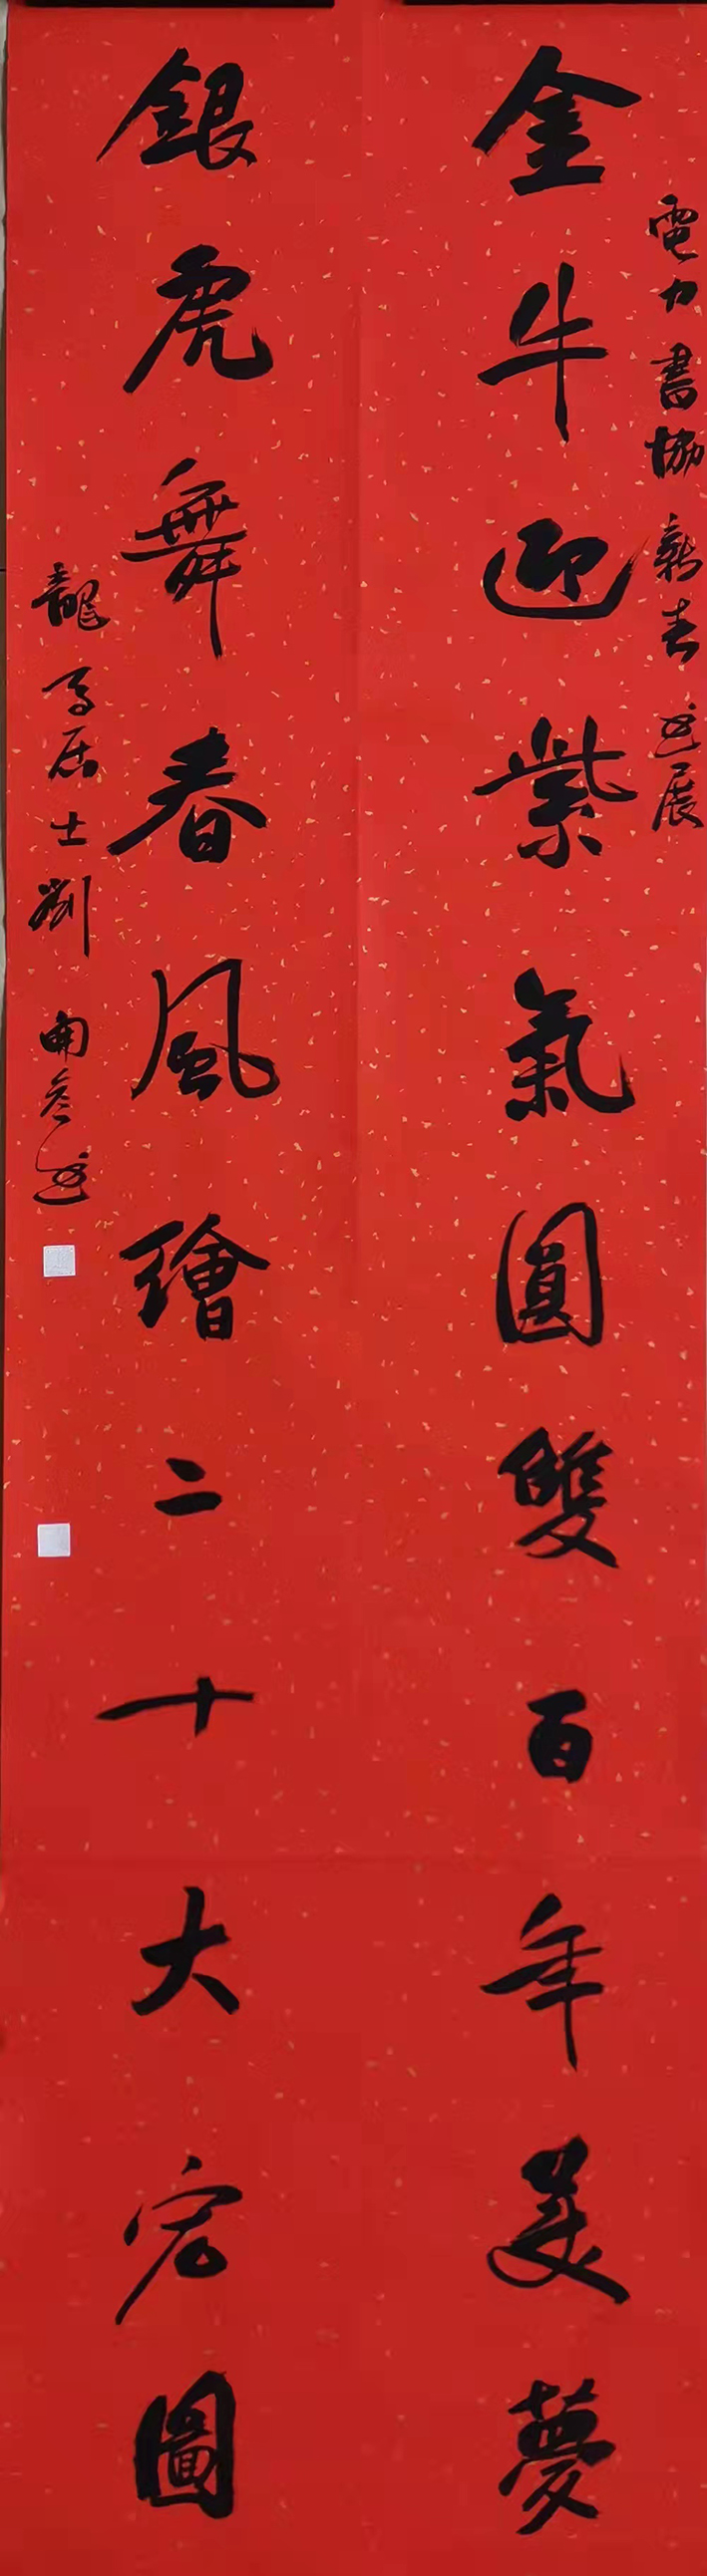 電力書協新春書展
金牛迎紫氣圓雙百年美夢
銀虎舞春風繪二十大宏圖
居士劉書